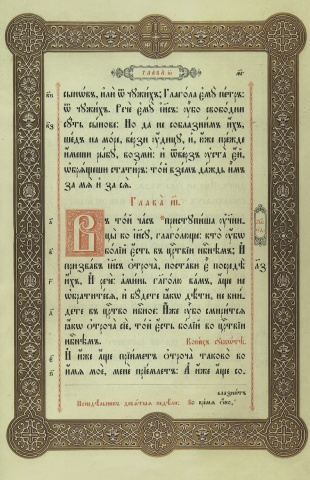 ГЛАВА И҃І
сынѡвъ, и҆лѝ ѿ чꙋжи́хъ; Глаго́ла є҆мꙋ̀ пе́тръ:
ѿ чꙋжи́хъ. Рече́ є҆мꙋ̀ і҆и҃съ: ᲂу҆̀бо свобо́дни
сꙋ́ть сы́нове: Но да не соблазни́мъ и҆́хъ,
ше́дъ на мо́ре, ве́рзи ᲂу҆́дицꙋ, и҆, ю҆́же пре́жде
и҆́меши ры́бꙋ, возмѝ: и҆ ѿве́рзъ ᲂу҆ста̀ є҆́й,
ѡ҆брѧ́щеши стати́ръ: то́й взе́мъ да́ждь и҆̀мъ
за мѧ̀ и҆ за сѧ̀.
Глава̀ и҃і.
Въ то́й ча́съ пристꙋпи́ша ᲂу҆чн҃цы̀
ко і҆и҃сꙋ, глаго́люще: кто̀ ᲂу҆́бо
бо́лій є҆́сть въ црⷭ҇твіи нбⷭ҇нѣмъ; И҆
призва́въ і҆и҃съ ѻ҆троча̀, поста́ви є҆̀ посредѣ̀
и҆́хъ, И҆ речѐ: а҆ми́нь гл҃го́лю ва́мъ, а҆́ще не
ѡ҆брати́тесѧ, и҆ бꙋ́дете ꙗ҆́кѡ дѣ́ти, не вни́-
дете въ црⷭ҇тво нбⷭ҇ное: И҆́же ᲂу҆̀бо смири́тсѧ
ꙗ҆́кѡ ѻ҆троча̀ сіѐ, то́й є҆́сть бо́лій во црⷭ҇твіи
нбⷭ҇нѣмъ. Коне́цъ сꙋббѡ́тѣ.
И҆ и҆́же а҆́ще прїи́метъ ѻ҆троча̀ таково̀ во
и҆́мѧ моѐ, менѐ прїе́млетъ: А҆ и҆́же а҆́ще со-
блазни́тъ
Понедѣ́льникъ девѧ́тыѧ недѣ́ли: Во вре́мѧ ѻ҆́но,